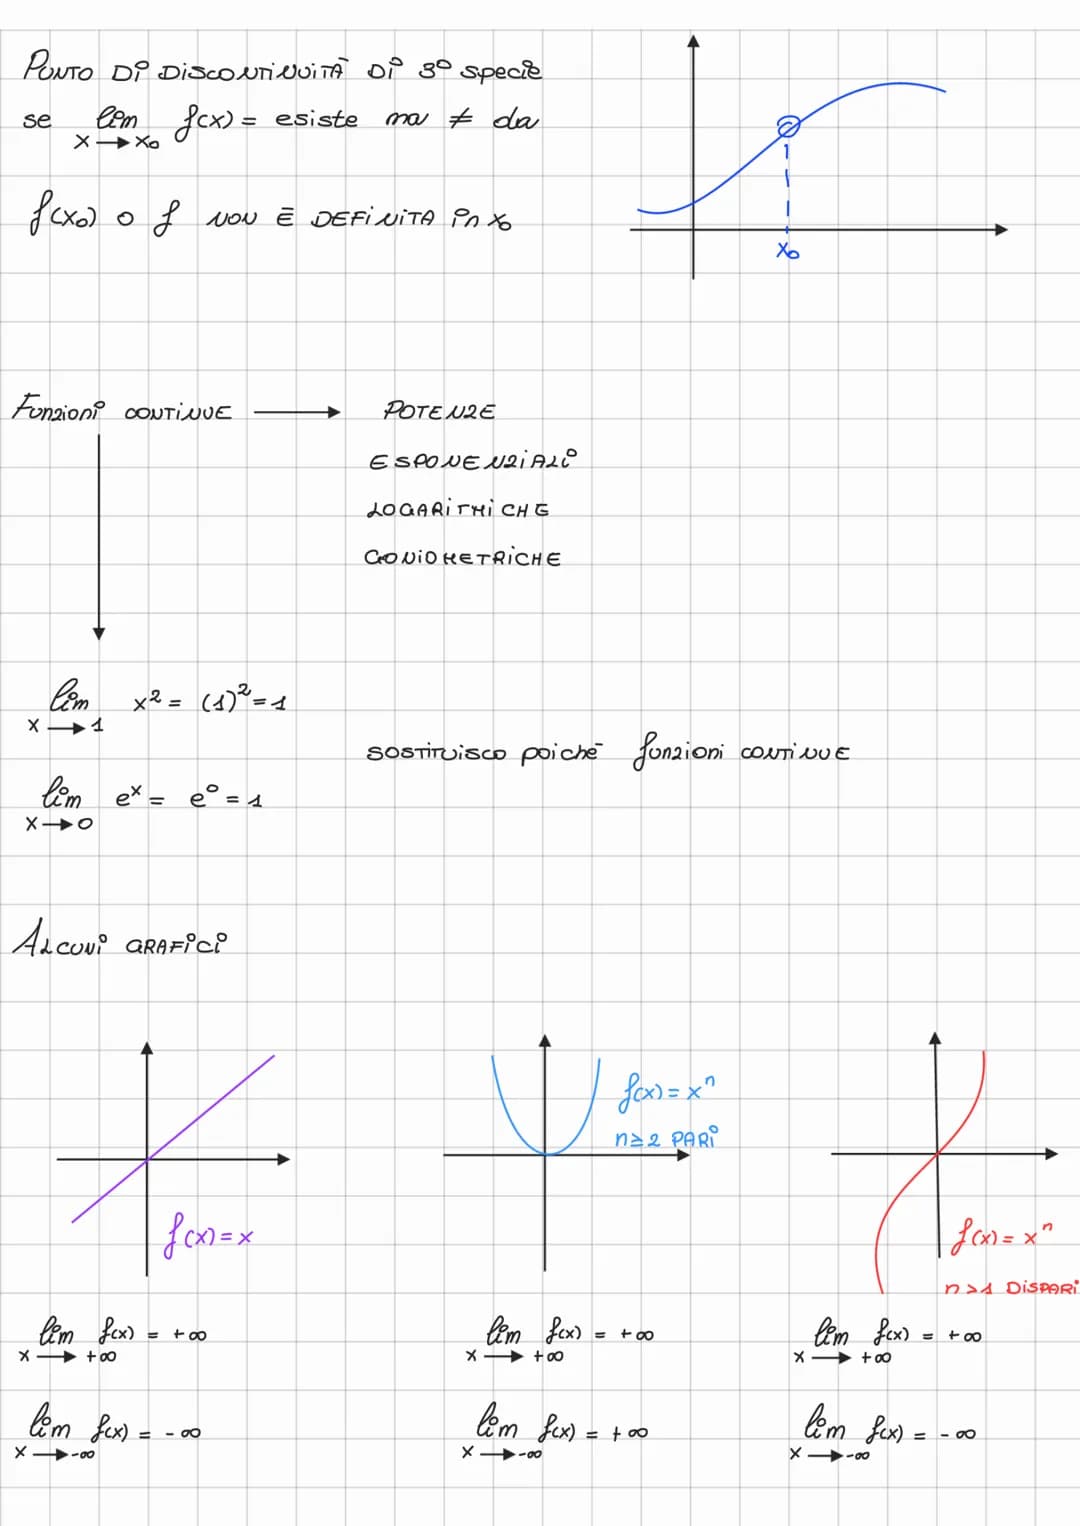 PUNTO DI DISCONTINUITÀ DI 3° specie
se lim f(x) = esiste ma ≠ da
x → x₀
f(x₀) o f NON È DEFINITA in x₀
x₀
Funzioni CONTINUE → POTENZE
ESPONENZIALI
LOGARITMICHE
GONIOMETRICHE
lim x² = (1)² = 1
x → 1
sostituisco poiché funzioni CONTINUE
lim eˣ = e⁰ = 1
x → 0
ALCUNI GRAFICI
f(x) = xⁿ
n ≥ 2 PARI
f(x) = x
f(x) = xⁿ
n > 1 DISPARI
lim f(x) = +∞ lim f(x) = +∞ lim f(x) = +∞
x → +∞ x → +∞ x → +∞
lim f(x) = -∞ lim f(x) = +∞ lim f(x) = -∞
x → -∞ x → -∞ x → -∞